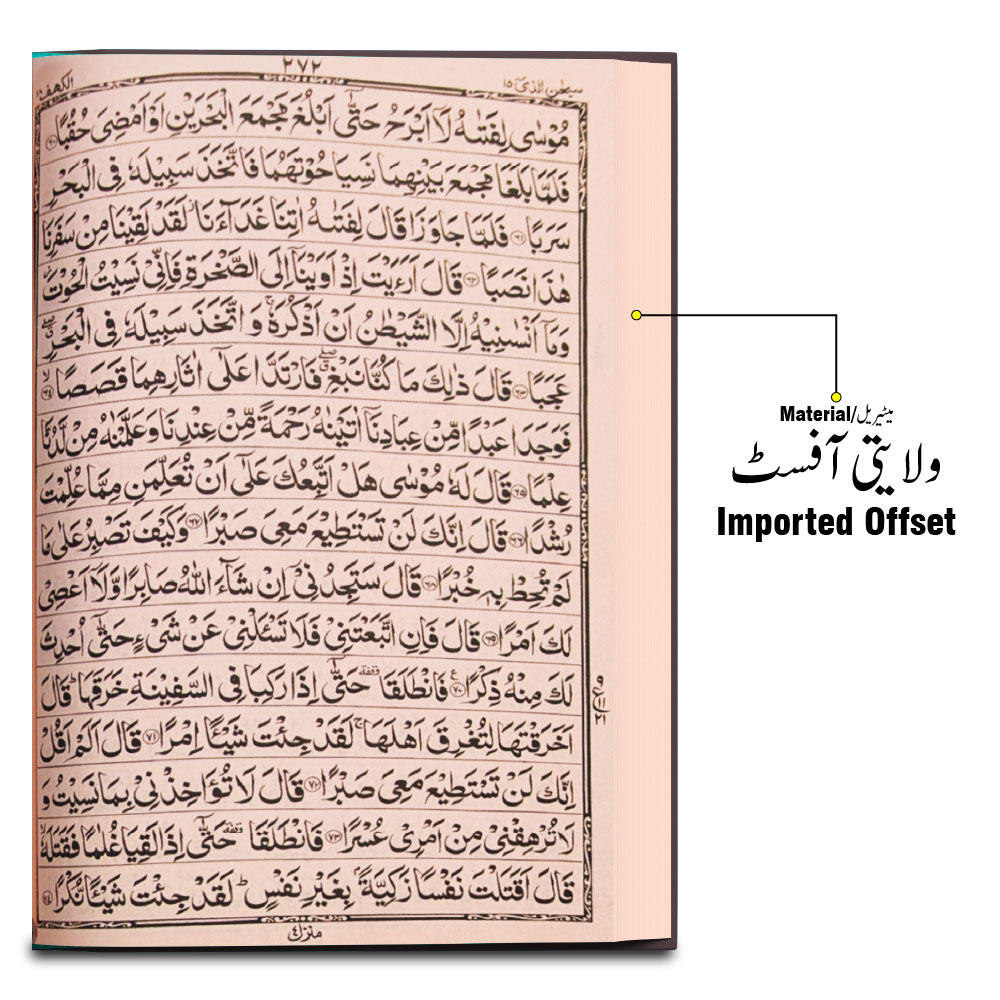 سبحن الذی ١٥
٢٧٢
الكهف ١٨
مُوْسٰى لِفَتٰىهُ لَاۤ اَبْرَحُ حَتّٰۤى اَبْلُغَ مَجْمَعَ الْبَحْرَيْنِ اَوْ اَمْضِىَ حُقُبًا ﴿۶۰﴾
فَلَمَّا بَلَغَا مَجْمَعَ بَيْنِهِمَا نَسِيَا حُوْتَهُمَا فَاتَّخَذَ سَبِيْلَهٗ فِى الْبَحْرِ
سَرَبًا ﴿۶۱﴾ فَلَمَّا جَاوَزَا قَالَ لِفَتٰىهُ اٰتِنَا غَدَآءَنَا ز لَقَدْ لَقِيْنَا مِنْ سَفَرِنَا
هٰذَا نَصَبًا ﴿۶۲﴾ قَالَ اَرَءَيْتَ اِذْ اَوَيْنَاۤ اِلَى الصَّخْرَةِ فَاِنِّىْ نَسِيْتُ الْحُوْتَ ز
وَمَاۤ اَنْسٰنِيْهُ اِلَّا الشَّيْطٰنُ اَنْ اَذْكُرَهٗ ۚ وَاتَّخَذَ سَبِيْلَهٗ فِى الْبَحْرِ ۖ ق
عَجَبًا ﴿۶۳﴾ قَالَ ذٰلِكَ مَا كُنَّا نَبْغِ ۖ ق فَارْتَدَّا عَلٰۤى اٰثَارِهِمَا قَصَصًا ۙ ﴿۶۴﴾
فَوَجَدَا عَبْدًا مِّنْ عِبَادِنَاۤ اٰتَيْنٰهُ رَحْمَةً مِّنْ عِنْدِنَا وَعَلَّمْنٰهُ مِنْ لَّدُنَّا
عِلْمًا ﴿۶۵﴾ قَالَ لَهٗ مُوْسٰى هَلْ اَتَّبِعُكَ عَلٰۤى اَنْ تُعَلِّمَنِ مِمَّا عُلِّمْتَ
رُشْدًا ﴿۶۶﴾ قَالَ اِنَّكَ لَنْ تَسْتَطِيْعَ مَعِىَ صَبْرًا ﴿۶۷﴾ وَكَيْفَ تَصْبِرُ عَلٰى مَا
لَمْ تُحِطْ بِهٖ خُبْرًا ﴿۶۸﴾ قَالَ سَتَجِدُنِىْۤ اِنْ شَآءَ اللّٰهُ صَابِرًا وَّلَاۤ اَعْصِىْ
لَكَ اَمْرًا ﴿۶۹﴾ قَالَ فَاِنِ اتَّبَعْتَنِىْ فَلَا تَسْـَٔلْنِىْ عَنْ شَىْءٍ حَتّٰۤى اُحْدِثَ
لَكَ مِنْهُ ذِكْرًا ﴿۷۰﴾ ع فَانْطَلَقَا وقفة حَتّٰۤى اِذَا رَكِبَا فِى السَّفِيْنَةِ خَرَقَهَا ؕ قَالَ
اَخَرَقْتَهَا لِتُغْرِقَ اَهْلَهَا ۚ لَقَدْ جِئْتَ شَيْـًٔا اِمْرًا ﴿۷۱﴾ قَالَ اَلَمْ اَقُلْ
اِنَّكَ لَنْ تَسْتَطِيْعَ مَعِىَ صَبْرًا ﴿۷۲﴾ قَالَ لَا تُؤَاخِذْنِىْ بِمَا نَسِيْتُ وَ
لَا تُرْهِقْنِىْ مِنْ اَمْرِىْ عُسْرًا ﴿۷۳﴾ فَانْطَلَقَا وقفة حَتّٰۤى اِذَا لَقِيَا غُلٰمًا فَقَتَلَهٗ ۙ
قَالَ اَقَتَلْتَ نَفْسًا زَكِيَّةًۢ بِغَيْرِ نَفْسٍ ؕ لَقَدْ جِئْتَ شَيْـًٔا نُّكْرًا ﴿۷۴﴾
منزل ٤
Material/میٹیریل
ولایتی آفسٹ
Imported Offset